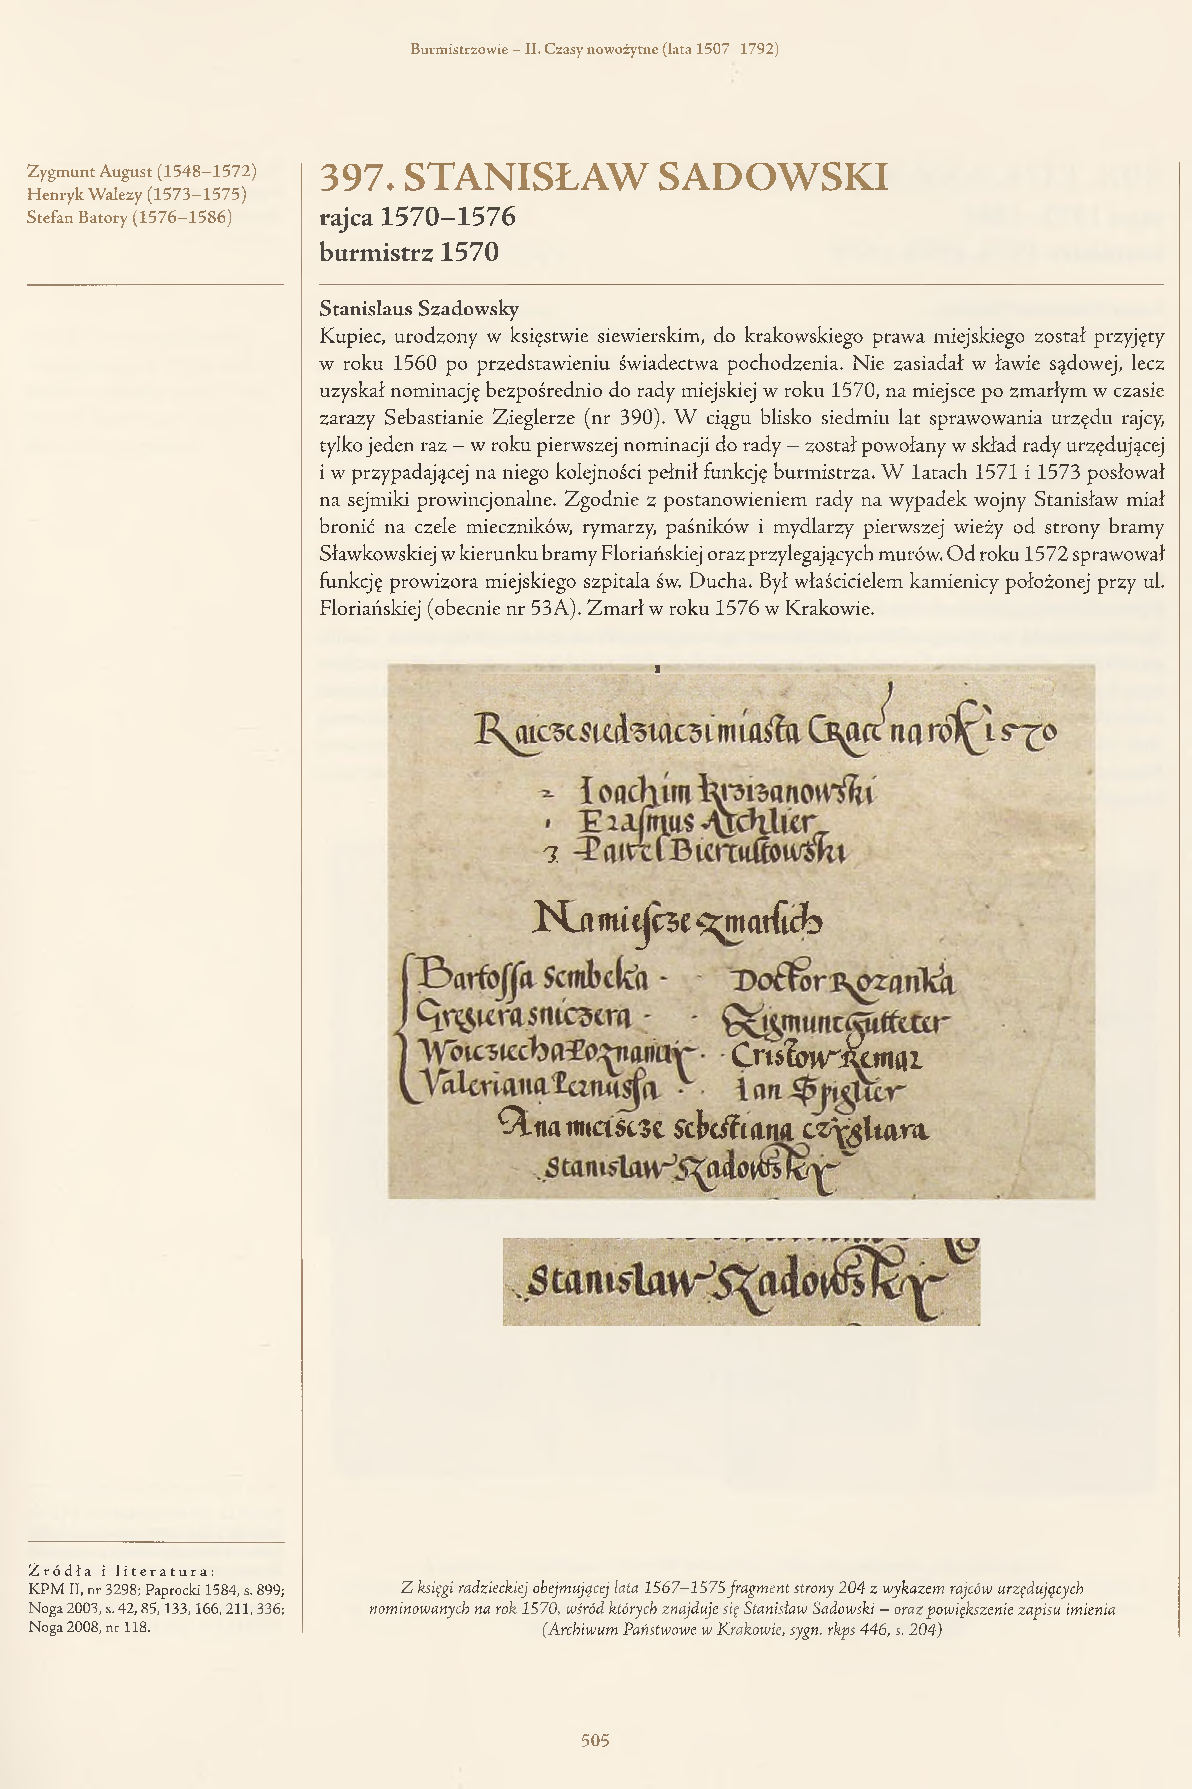 Burmistrzowie – II. Czasy nowożytne (lata 1507 1792)
Zygmunt August (1548–1572)
Henryk Walezy (1573–1575)
Stefan Batory (1576–1586)
397. STANISŁAW SADOWSKI
rajca 1570–1576
burmistrz 1570
Stanislaus Szadowsky
Kupiec, urodzony w księstwie siewierskim, do krakowskiego prawa miejskiego został przyjęty
w roku 1560 po przedstawieniu świadectwa pochodzenia. Nie zasiadał w ławie sądowej, lecz
uzyskał nominację bezpośrednio do rady miejskiej w roku 1570, na miejsce po zmarłym w czasie
zarazy Sebastianie Zieglerze (nr 390). W ciągu blisko siedmiu lat sprawowania urzędu rajcy,
tylko jeden raz – w roku pierwszej nominacji do rady – został powołany w skład rady urzędującej
i w przypadającej na niego kolejności pełnił funkcję burmistrza. W latach 1571 i 1573 posłował
na sejmiki prowincjonalne. Zgodnie z postanowieniem rady na wypadek wojny Stanisław miał
bronić na czele mieczników, rymarzy, paśników i mydlarzy pierwszej wieży od strony bramy
Sławkowskiej w kierunku bramy Floriańskiej oraz przylegających murów. Od roku 1572 sprawował
funkcję prowizora miejskiego szpitala św. Ducha. Był właścicielem kamienicy położonej przy ul.
Floriańskiej (obecnie nr 53A). Zmarł w roku 1576 w Krakowie.
miasta na rok 1570
2 Ioachim Krzizanowski
1 Erasmus Aichlier
3 Pawel Biertultowski
Na miejscze zmarlich
Bartossa Sembeka - - Doctor Rozanka
Gregiera sniczera - - Zigmunt Gutteter
Woicziecha Poznaniay - - Cristow Remar
Valeriana Pernussa - - Ian Spiglier
A na mieiscze Sebestiana czygliara
Stanislaw Szadowsky
Stanislaw Szadowsky
Źródła i literatura:
KPM II, nr 3298; Paprocki 1584, s. 899;
Noga 2003, s. 42, 85, 133, 166, 211, 336;
Noga 2008, nr 118.
Z księgi radzieckiej obejmującej lata 1567–1575 fragment strony 204 z wykazem rajców urzędujących
nominowanych na rok 1570, wśród których znajduje się Stanisław Sadowski – oraz powiększenie zapisu imienia
(Archiwum Państwowe w Krakowie, sygn. rkps 446, s. 204)
505